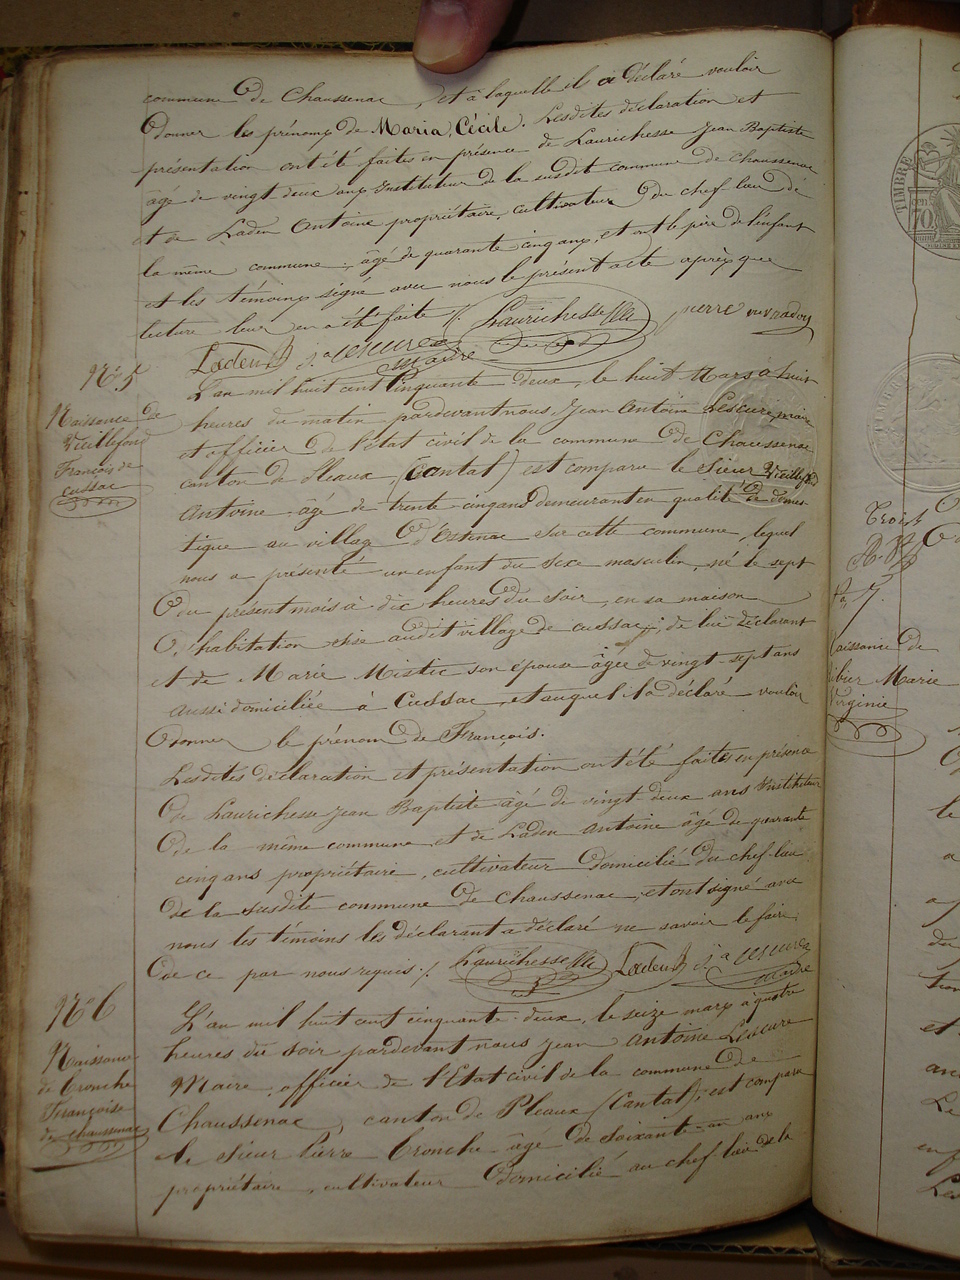 commune de Chaussenac, et à laquelle il a déclaré vouloir
donner les prénoms de Maria, Cécile. Lesdites déclaration et
présentation ont été faites en présence de Laurichesse Jean Baptiste
âgé de vingt deux ans Instituteur de la susdit commune de Chaussenac
et de Laden Antoine propriétaire, cultivateur du chef-lieu de
la même commune, âgé de quarante cinq ans, et ont le père de l'enfant
et les témoins signé avec nous le présent acte après que
lecture leur en a été faite ./. Laurichesse pierre
Laden jn a Lescure maire
N° 5
Naissance de
Vieillefond
François de
cussac
L'an mil huit cent cinquante deux, le huit Mars à huit
heures du matin pardevant nous Jean Antoine Lescure, maire
et officier de l'état civil de la commune de Chaussenac
canton de Pleaux, (Cantal) est comparu le Sieur Vieillefond
Antoine âgé de trente cinq ans demeurant en qualité de domes-
tique au village d'Ostenac sur cette commune, lequel
nous a présenté un enfant du sexe masculin, né le sept
du présent mois à dix heures du soir, en sa maison
d'habitation sise audit village de cussac, de lui déclarant
et de Marie Mistic son épouse âgée de vingt-sept ans
aussi domiciliée à Cussac, et auquel il a déclaré vouloir
donner le prénom de François.
Lesdites déclaration et présentation ont été faites en présence
de Laurichesse Jean Baptiste âgé de vingt-deux ans Instituteur
de la même commune et de Laden Antoine âgé de quarante
cinq ans propriétaire, cultivateur domicilié du chef-lieu
de la susdite commune de Chaussenac, et ont signé avec
nous les témoins le déclarant a déclaré ne savoir le faire
de ce par nous requis ./. Laurichesse Laden jn a Lescure
maire
N° 6
Naissance
de Tronche
Françoise
de Chaussenac
L'an mil huit cent cinquante-deux, le seize mars à quatre
heures du soir pardevant nous Jean Antoine Lescure
Maire, officier de l'Etat civil de la commune de
Chaussenac, canton de Pleaux (Cantal), est comparu
le Sieur Pierre Tronche âgé de soixante-un ans
propriétaire, cultivateur domicilié au chef-lieu de la
TIMBRE
70
Naissance de
Marie
Virginie